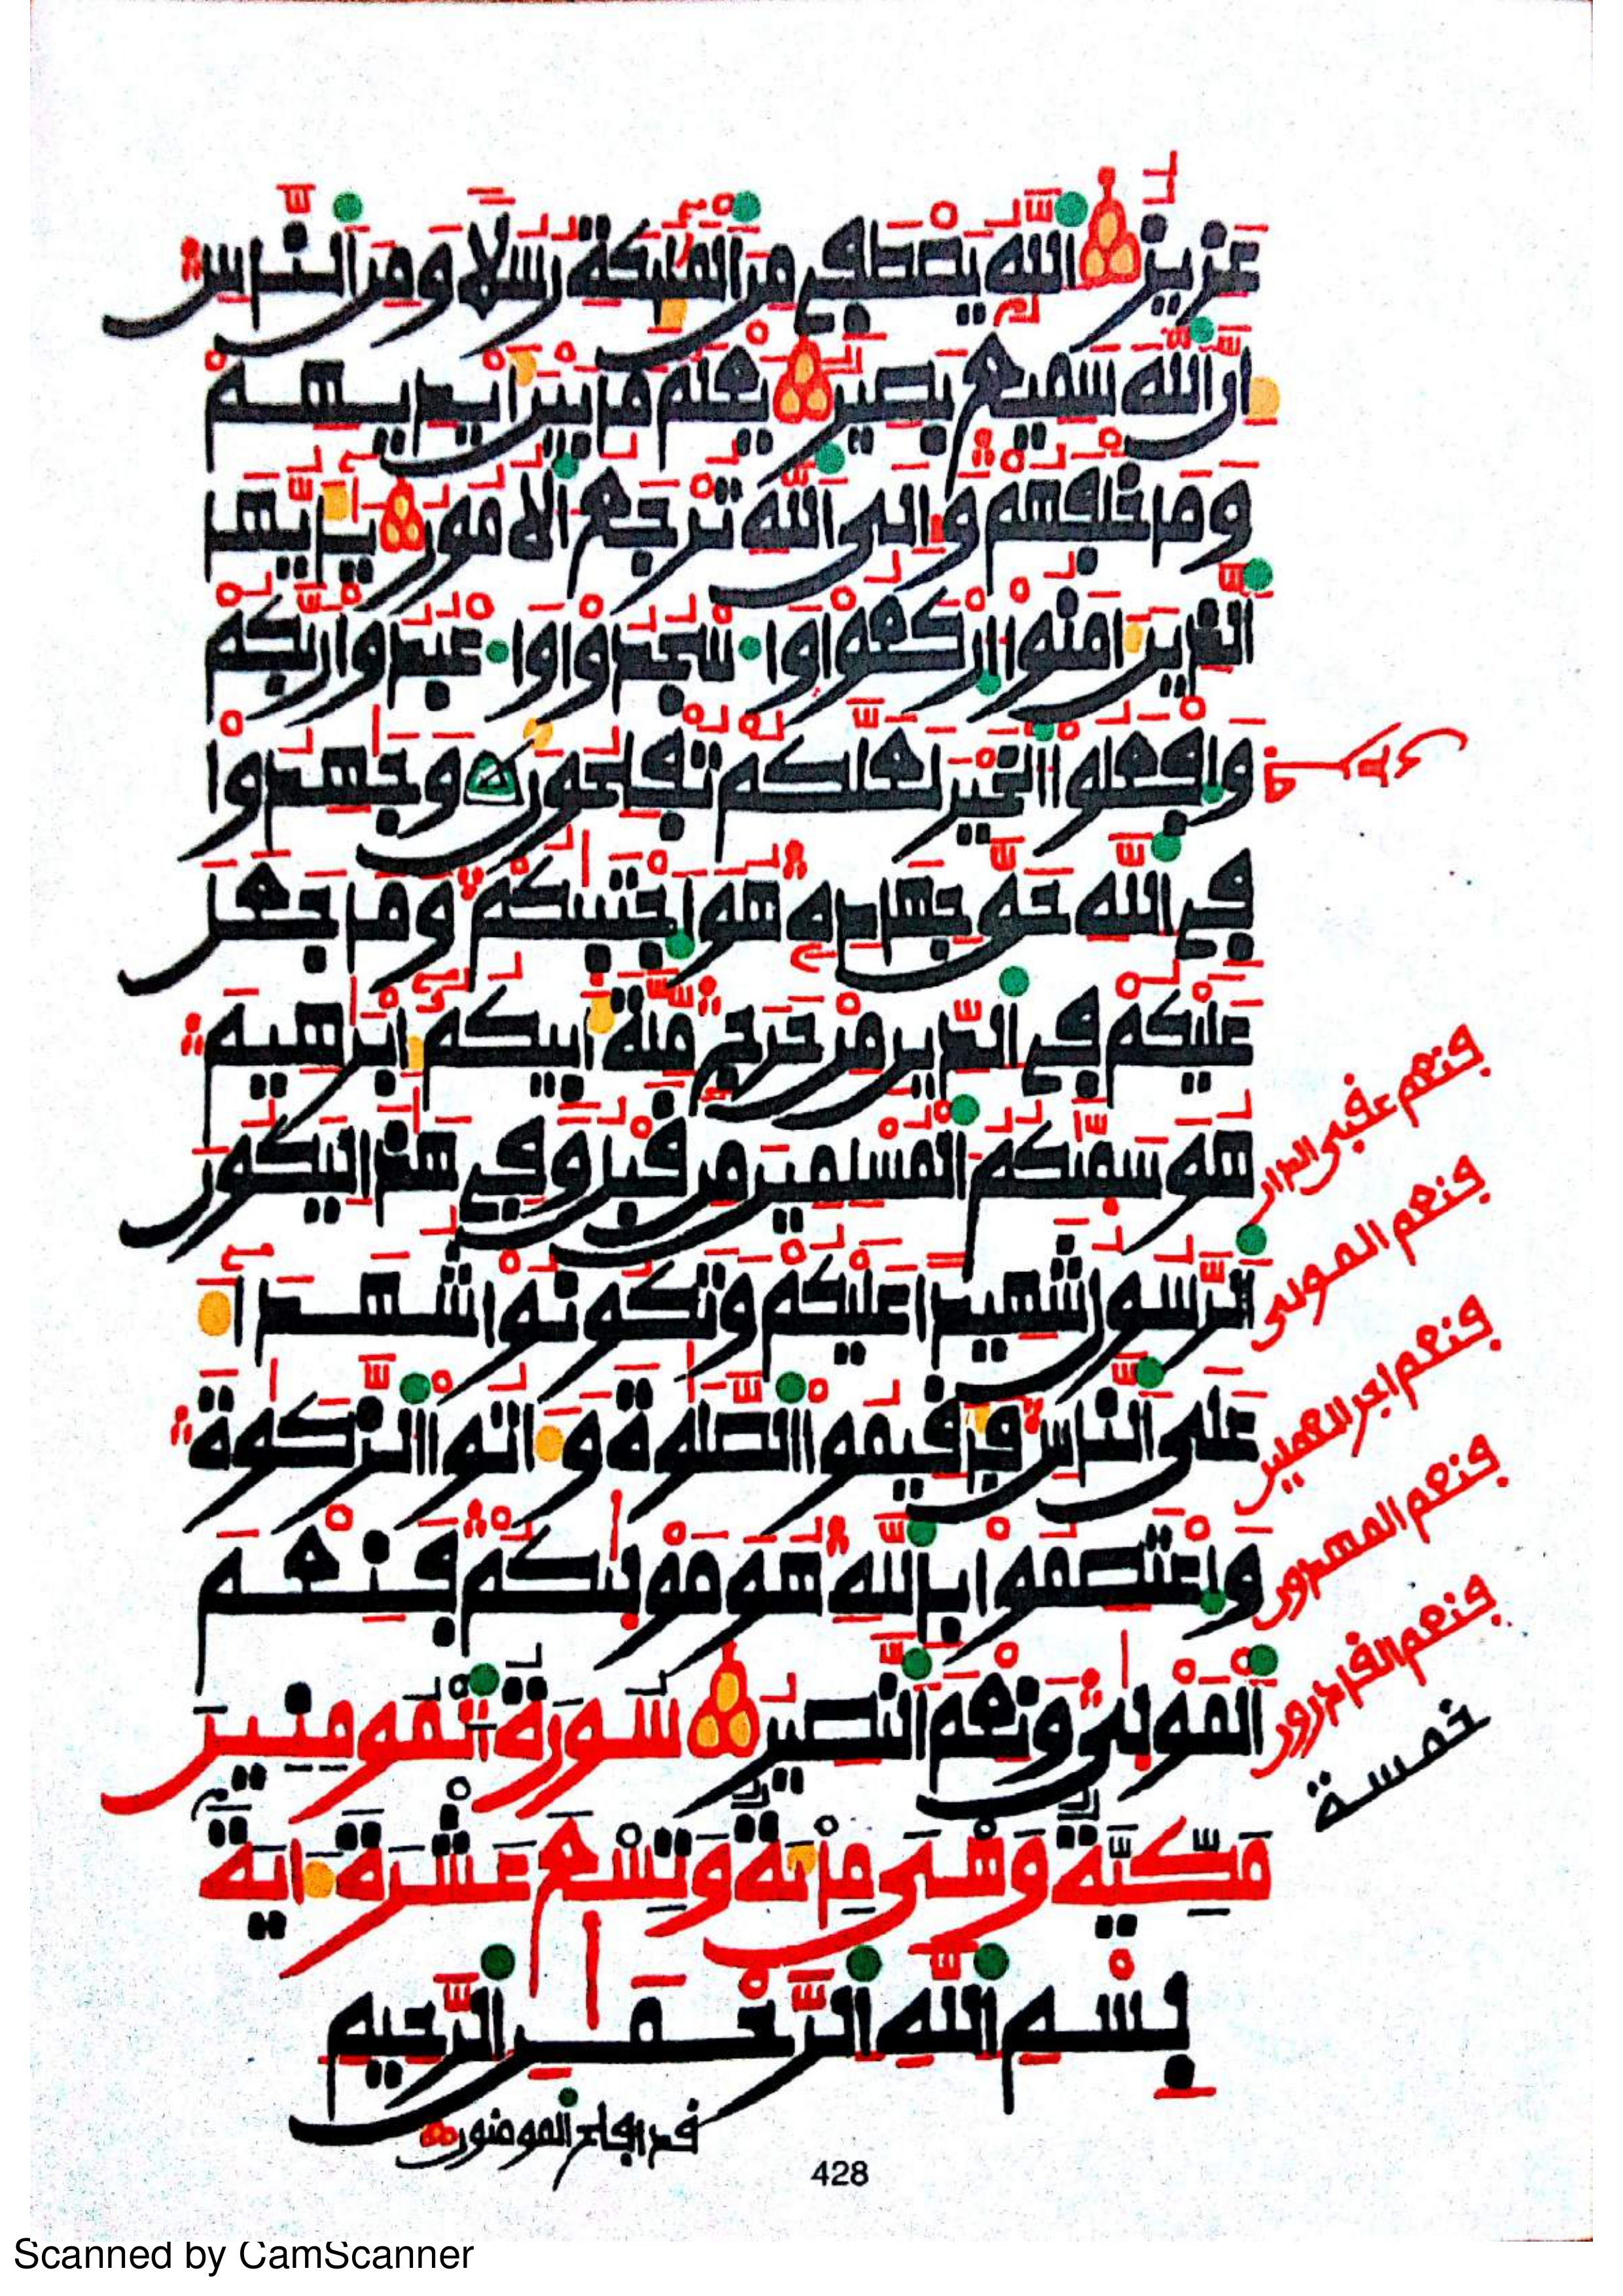 عزيز الله يصطفى من الملئكة رسلا ومن الناس
ان الله سميع بصير يعلم ما بين ايديهم
وما خلفهم والى الله ترجع الامور يايها
الذين امنوا اركعوا واسجدوا واعبدوا ربكم
وافعلوا الخير لعلكم تفلحون وجهدوا
فى الله حق جهاده هو اجتبيكم وما جعل
عليكم فى الدين من حرج ملة ابيكم ابرهيم
هو سميكم المسلمين من قبل وفى هذا ليكون
الرسول شهيدا عليكم وتكونوا شهدا
على الناس فاقيموا الصلوة واتوا الزكوة
واعتصموا بالله هو موليكم فنعم
المولى ونعم النصير سورة المومنين
مكية وهى مائة وتسع عشرة اية
بسم الله الرحمن الرحيم
قد افلح المومنون
فنعم عقبى الدار
فنعم المولى
فنعم اجر العملين
فنعم المهدون
فنعم القدرون
خمسة
428
Scanned by CamScanner